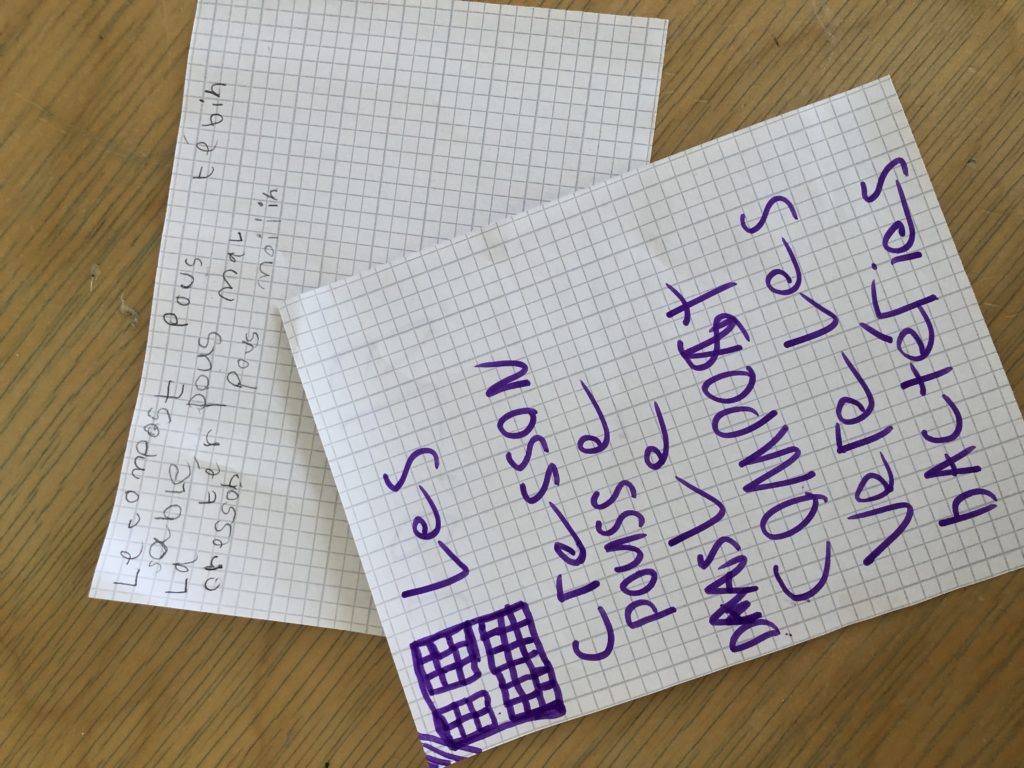 Le compost pous té bih
sable pous mal
La tér pous moiiin
chossete pas
Les
cresson
pousse
DANS Le
COMPOST
vere Les
bActéries